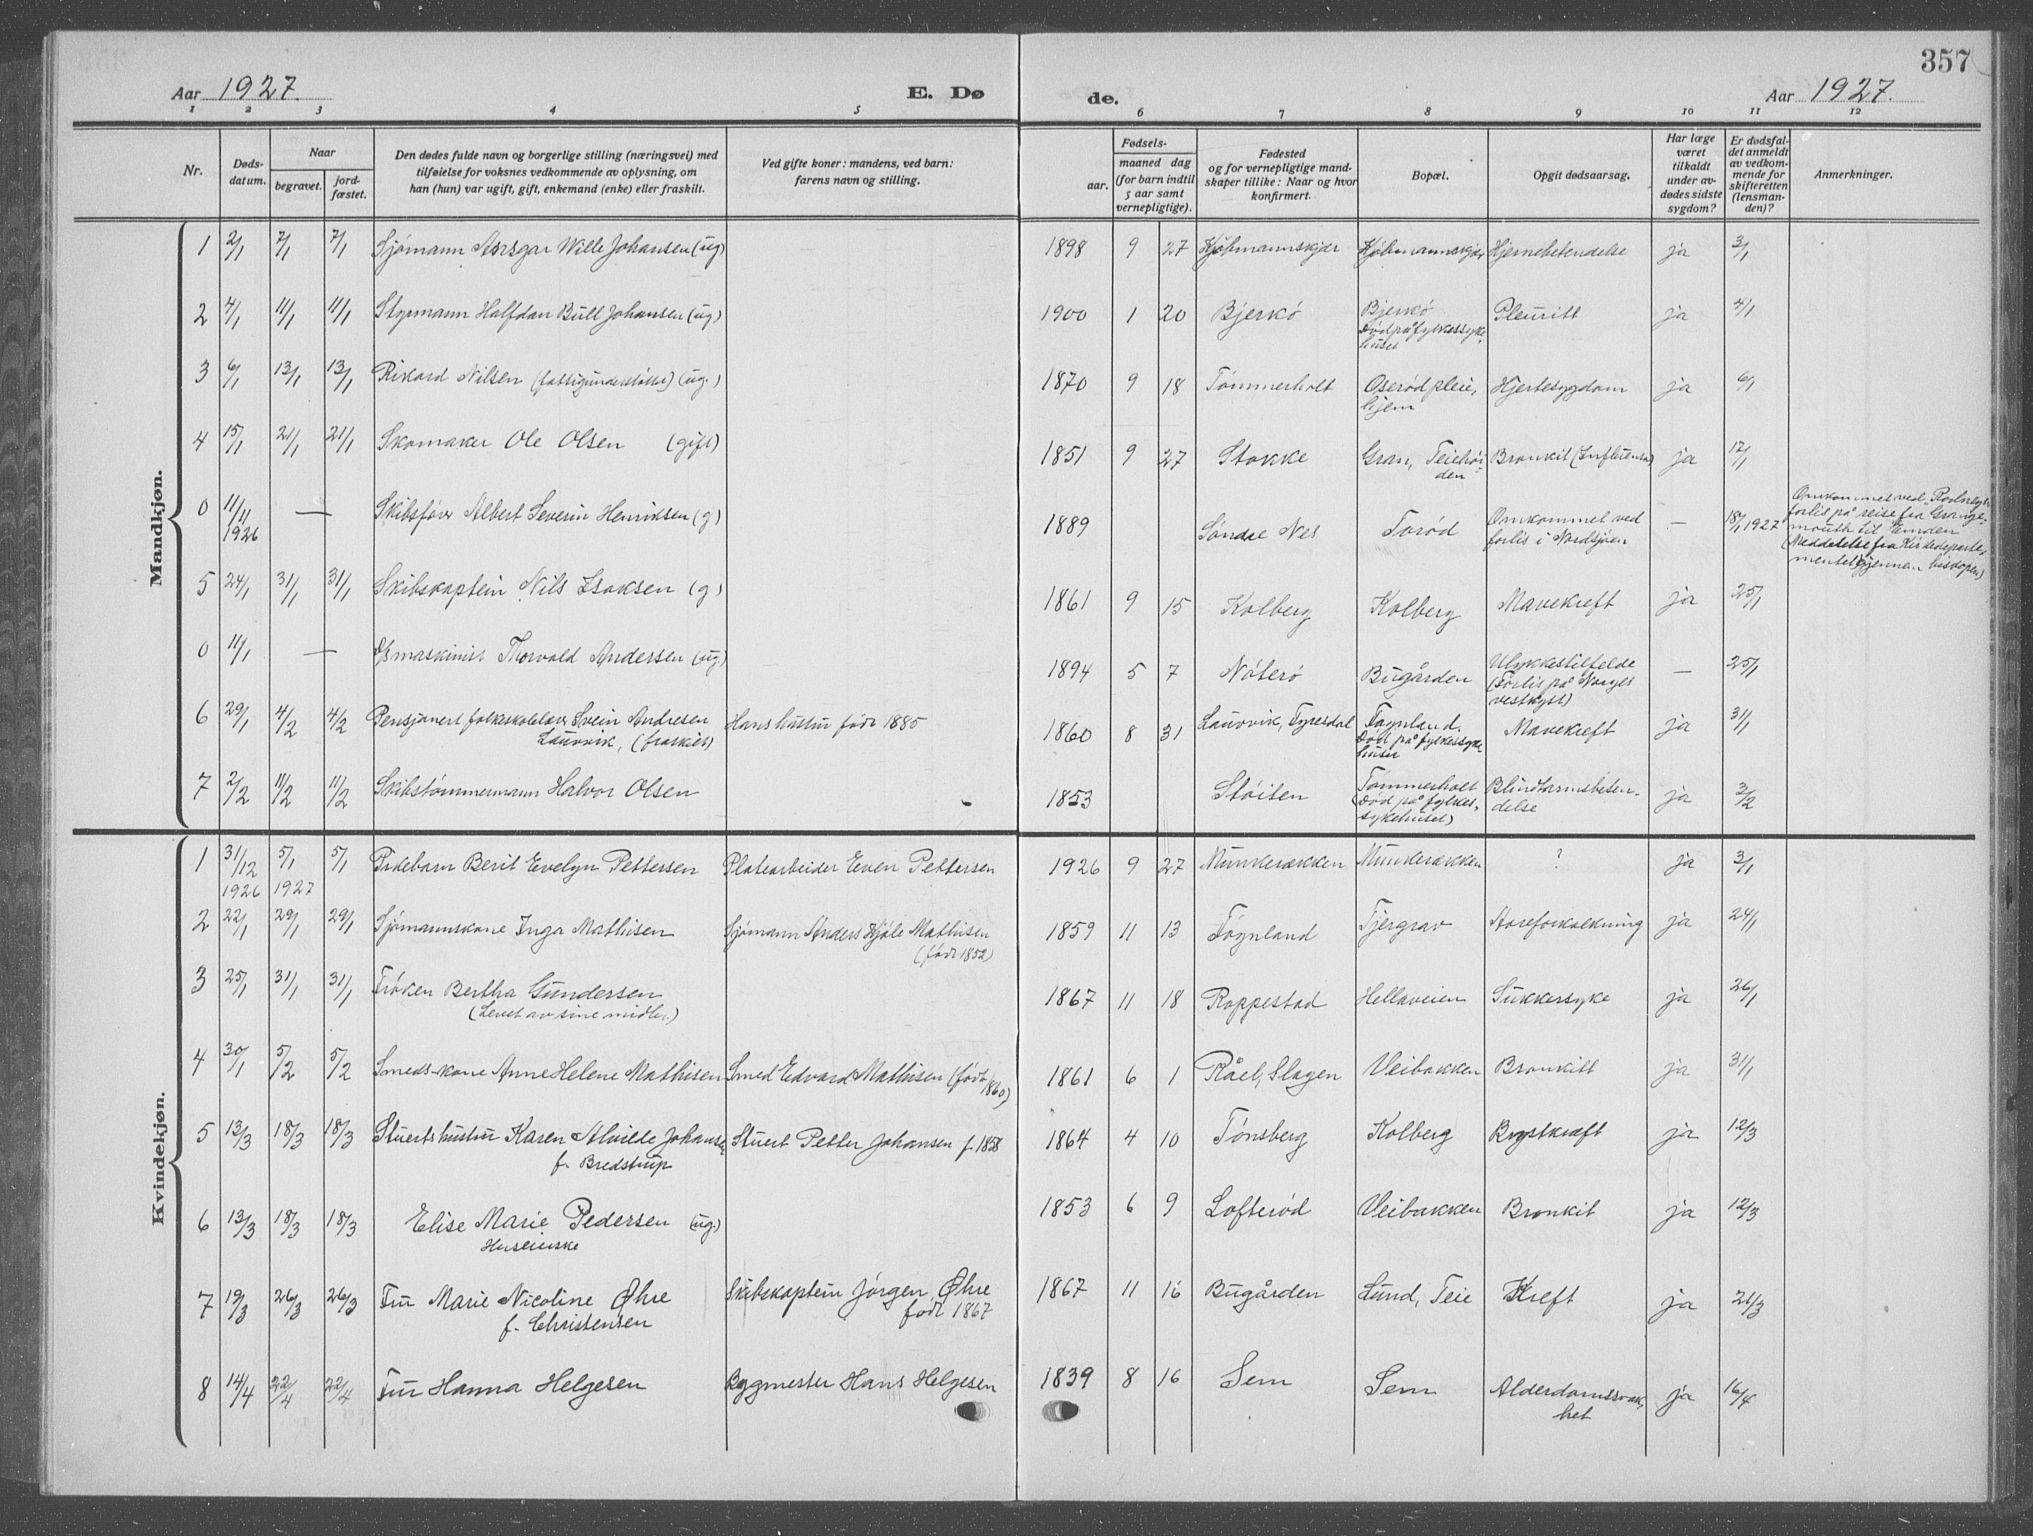 357
Aar 1927. E. Døde. Aar 1927.
1 2 3 4 5 6 7 8 9 10 11 12
Nr. | Dødsdatum. | Naar begravet. | jordfæstet. | Den dødes fulde navn og borgerlige stilling (næringsvei) med tilføielse for voksnes vedkommende av oplysning, om han (hun) var ugift, gift, enkemand (enke) eller fraskilt. | Ved gifte koner: mandens, ved barn: farens navn og stilling. | Fødsels- aar. | maaned dag (for barn indtil 5 aar samt vernepligtige). | Fødested og for vernepligtige mandskaper tillike: Naar og hvor konfirmert. | Bopæl. | Opgit dødsaarsag. | Har læge været tilkaldt under avdødes sidste sygdom? | Er dødsfaldet anmeldt av vedkommende for skifteretten (lensmanden)? | Anmerkninger.
Mandkjøn.
1 2/1 7/1 7/1 Sjømann Asrsgar Wille Johansen (ug) 1898 9 27 Kjøbmannskjær Kjøbmannskjær Hjernebetendelse ja 3/1
2 4/1 11/1 11/1 Styrmann Halfdan Bull Johansen (ug) 1900 1 20 Bjerkö Bjerkö Død på fylkessykehuset Pleuritt ja 4/1
3 6/1 13/1 13/1 Rikard Nilsen (fattigunderstøtte) (ug.) 1870 9 18 Tømmerholt Oserød pleiehjem Hjertesygdom ja 6/1
4 15/1 21/1 21/1 Skomaker Ole Olsen (gift) 1851 9 27 Stokke Gran, Teiehøiden Bronkit (Influensa) ja 17/1
0 11/11 1926 — Skibsfører Albert Severin Henriksen (g) 1889 Søndre Nes Torød Omkommet ved forlis i Nordsjøen — 18/1 1927 Omkommet ved forlis på reise fra Grangemouth til Emden (Meddelelse fra Kirkedepartementet gjennem biskopen)
5 24/1 31/1 31/1 Skibskaptein Nils Isaksen (g) 1861 9 15 Kolberg Kolberg Mavekreft ja 25/1
0 11/1 — maskinist Thorvald Andersen (ug.) 1894 5 7 Nøterö Bugården Ulykkestilfelde (Forlis på Norges vestkyst) — 25/1
6 29/1 4/2 4/2 Pensjonert folkeskolelærer Svein Andresen Lauvvik, (fraskilt) Hans hustru født 1885 1860 8 31 Lauvvik, Fyresdal Føynland. Død på fylkessykehuset Mavekreft ja 31/1
7 2/2 11/2 11/2 Skibstømmermann Halvor Olsen 1853 Støiten Tømmerholt (død på fylkessykehuset) Blindtarmsbetendelse ja 3/2
Kvindekjøn.
1 31/12 1926 5/1 1927 5/1 Pikebarn Berit Evelyn Pettersen Platearbeider Even Pettersen 1926 9 27 Munkerækken Munkerækken ? ja 3/1
2 22/1 29/1 29/1 Sjømannskone Inga Mathisen Sjømann Anders Kjøle Mathisen (født 1852) 1859 11 13 Føynland Tjergrav Aareforkalkning ja 24/1
3 25/1 31/1 31/1 Frøken Bertha Gundersen (Levet av sine midler.) 1867 11 18 Roppestad Hellaveien Sukkersyke ja 26/1
4 30/1 5/2 5/2 Smeds-kone Anne Helene Mathisen Smed Edvard Mathisen (født 1860) 1861 6 1 Råel, Slagen Veibakken Bronkitt ja 31/1
5 13/3 18/3 18/3 Stuerts hustru Karen Alvilde Johansen f. Bredstrup Stuert Petter Johansen f. 1858 1864 4 10 Tønsberg Kolberg Brystkræft ja 12/3
6 13/3 18/3 18/3 Elise Marie Pedersen (ug.) Huseierske 1853 6 9 Lofterød Veibakken Bronkit ja 12/3
7 19/3 26/3 26/3 Fru Marie Nicoline Øhre f. Christensen Skibskaptein Jørgen Øhre født 1867 1867 11 16 Bugården Lund, Teie Kreft ja 21/3
8 14/4 22/4 22/4 Fru Hanna Helgesen Bygmester Hans Helgesen 1839 8 16 Sem Sem Alderdomssvakhet ja 16/4